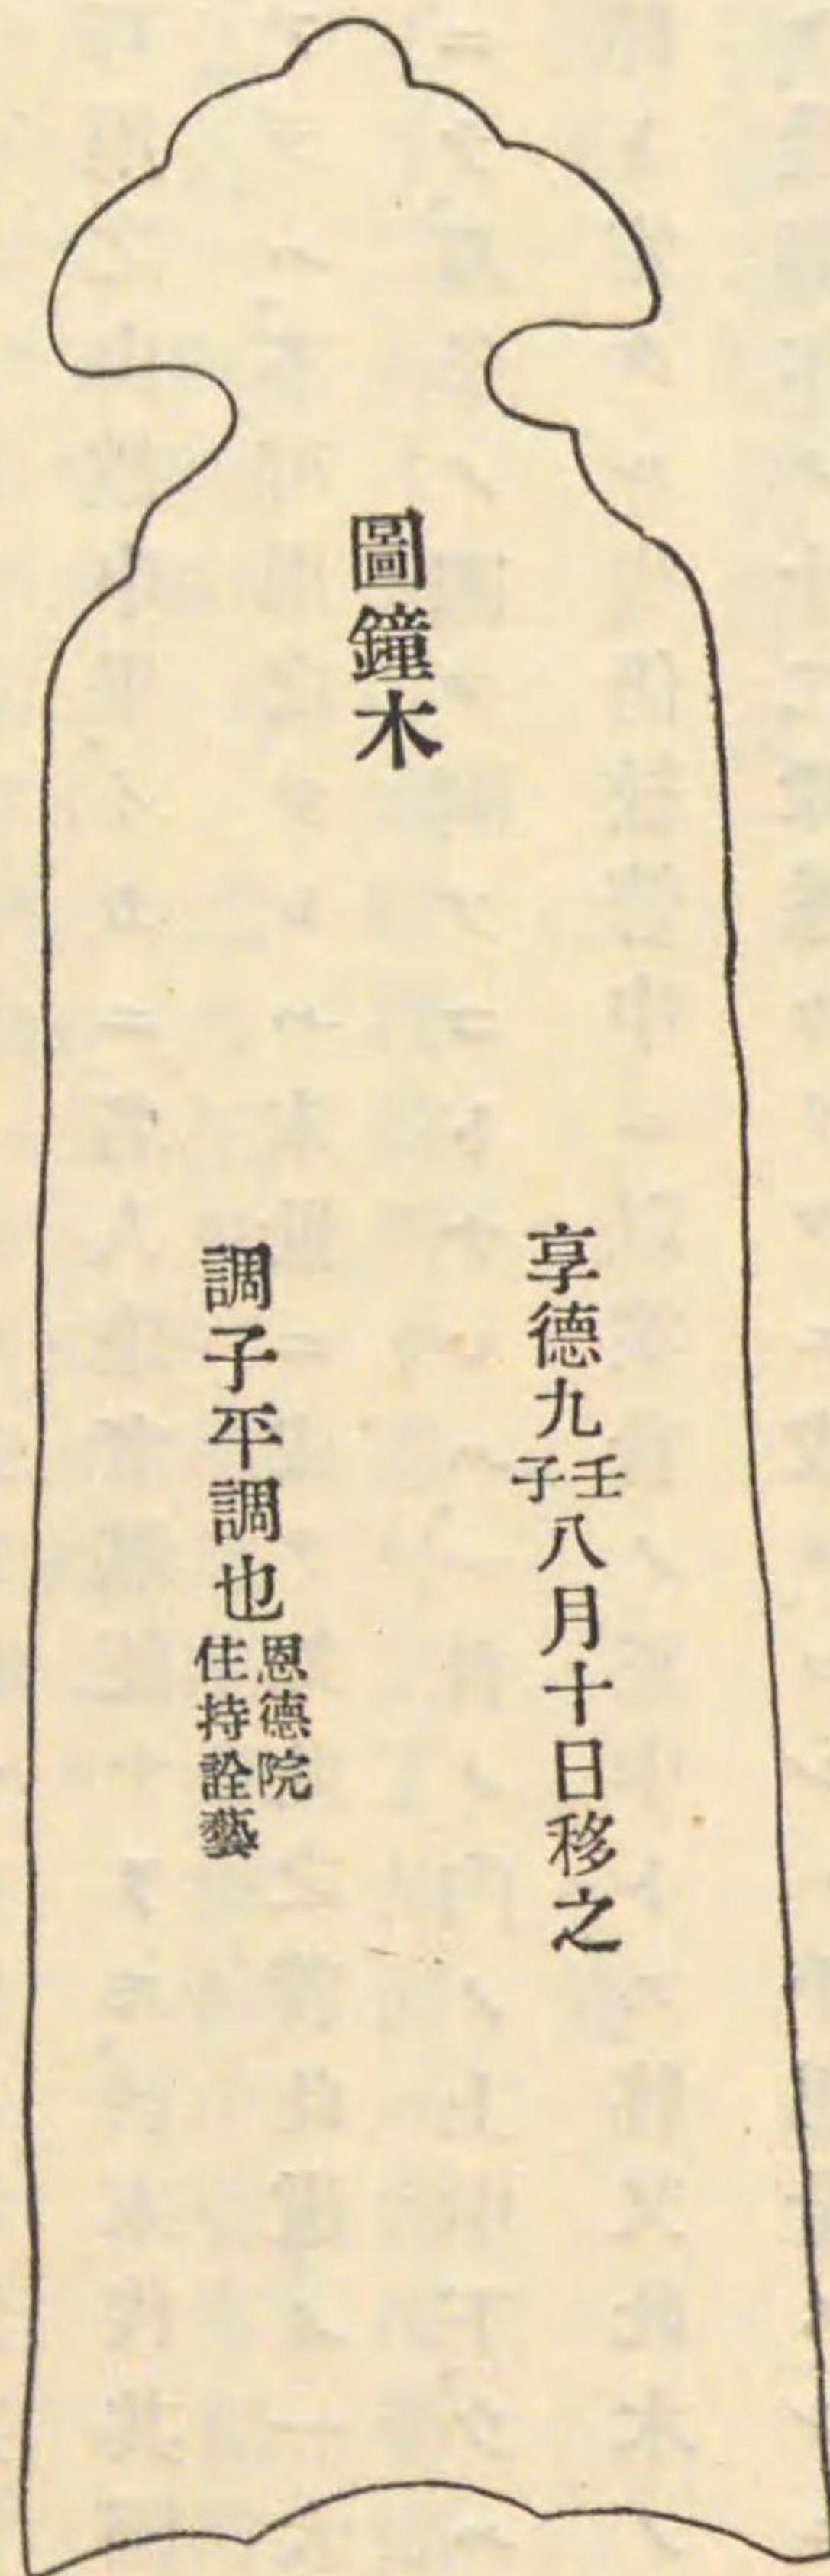 圖鐘木
享德九壬子八月十日移之
調子平調也恩德院住持詮藝